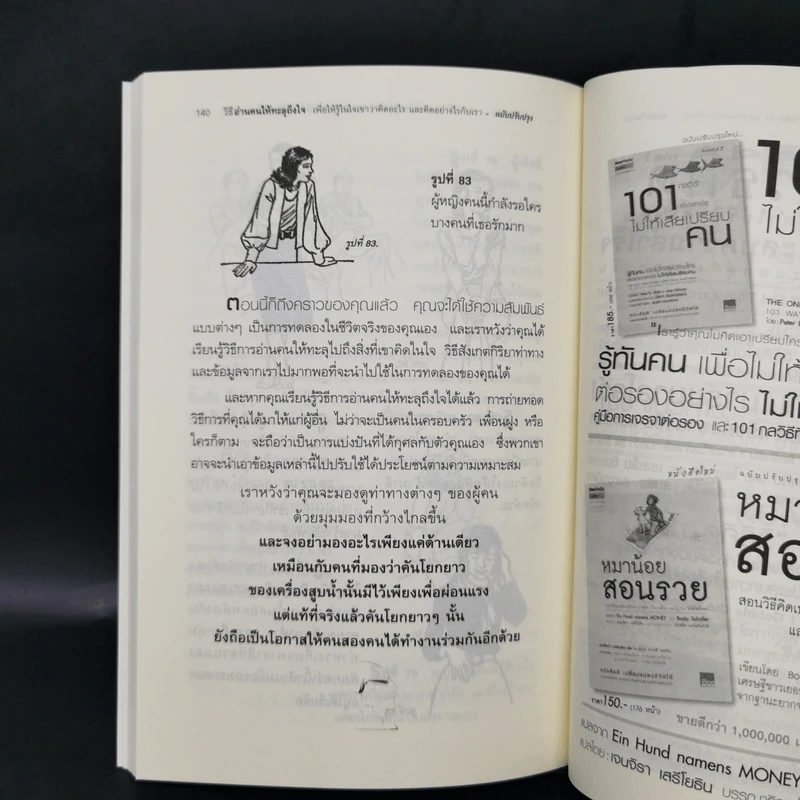 140 วิธีอ่านคนให้ทะลุถึงใจ เพื่อให้รู้ในใจเขาว่าคิดอะไร และคิดอย่างไรกับเรา - ฉบับปรับปรุง
รูปที่ 83
ผู้หญิงคนนี้กำลังรอใคร
บางคนที่เธอรักมาก
รูปที่ 83.
ตอนนี้ก็ถึงคราวของคุณแล้ว คุณจะได้ใช้ความสัมพันธ์
แบบต่างๆ เป็นการทดลองในชีวิตจริงของคุณเอง และเราหวังว่าคุณได้
เรียนรู้วิธีการอ่านคนให้ทะลุไปถึงสิ่งที่เขาคิดในใจ วิธีสังเกตกิริยาท่าทาง
และข้อมูลจากเราไปมากพอที่จะนำไปใช้ในการทดลองของคุณได้
และหากคุณเรียนรู้วิธีการอ่านคนให้ทะลุถึงใจได้แล้ว การถ่ายทอด
วิธีการที่คุณได้มาให้แก่ผู้อื่น ไม่ว่าจะเป็นคนในครอบครัว เพื่อนฝูง หรือ
ใครก็ตาม จะถือว่าเป็นการแบ่งปันที่ได้กุศลกับตัวคุณเอง ซึ่งพวกเขา
อาจจะนำเอาข้อมูลเหล่านี้ไปปรับใช้ได้ประโยชน์ตามความเหมาะสม
เราหวังว่าคุณจะมองดูท่าทางต่างๆ ของผู้คน
ด้วยมุมมองที่กว้างไกลขึ้น
และจงอย่ามองอะไรเพียงแค่ด้านเดียว
เหมือนกับคนที่มองว่าคันโยกยาว
ของเครื่องสูบน้ำนั้นมีไว้เพียงเพื่อผ่อนแรง
แต่แท้ที่จริงแล้วคันโยกยาวๆ นั้น
ยังถือเป็นโอกาสให้คนสองคนได้ทำงานร่วมกันอีกด้วย
ฉบับปรับปรุงใหม่...
101 กลวิธี
ไม่ให้เสียเปรียบ
คน
ราคา185.-
10
ไม่
THE ON
101 WAY
โดย: Peter
"เรารู้ว่าคุณไม่คิดเอาเปรียบใคร
รู้ทันคน เพื่อไม่ให้
ต่อรองอย่างไร ไม่ให้
คู่มือการเจรจาต่อรอง และ 101 กลวิธีที่
หนังสือใหม่ ฉบับปรับปรุ
หมาน้อย
สอนรวย
หมา
สอ
สอนวิธีคิด
และ
เขียนโดย Bo
เศรษฐีชาวเยอร
จากฐานะยากจ
ราคา150.- (176 หน้า)
ขายดีกว่า 1,000,000 เ
แปลจาก Ein Hund namens MONEY
แปลโดย : เจนจิรา เสรีโยธิน บรรณ